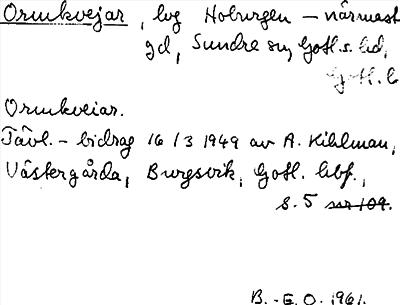 Ormkvejar, vg Hoburgen - närmast
gd, Sundre sn, Gotl. s. hd,
Gotl. l
Ormkveiar.
Tävl. - bidrag 16/3 1949 av A. Kihlman,
Västergårda, Burgsvik, Gotl. bbf.,
s. 5
B. - E. O. 1961.